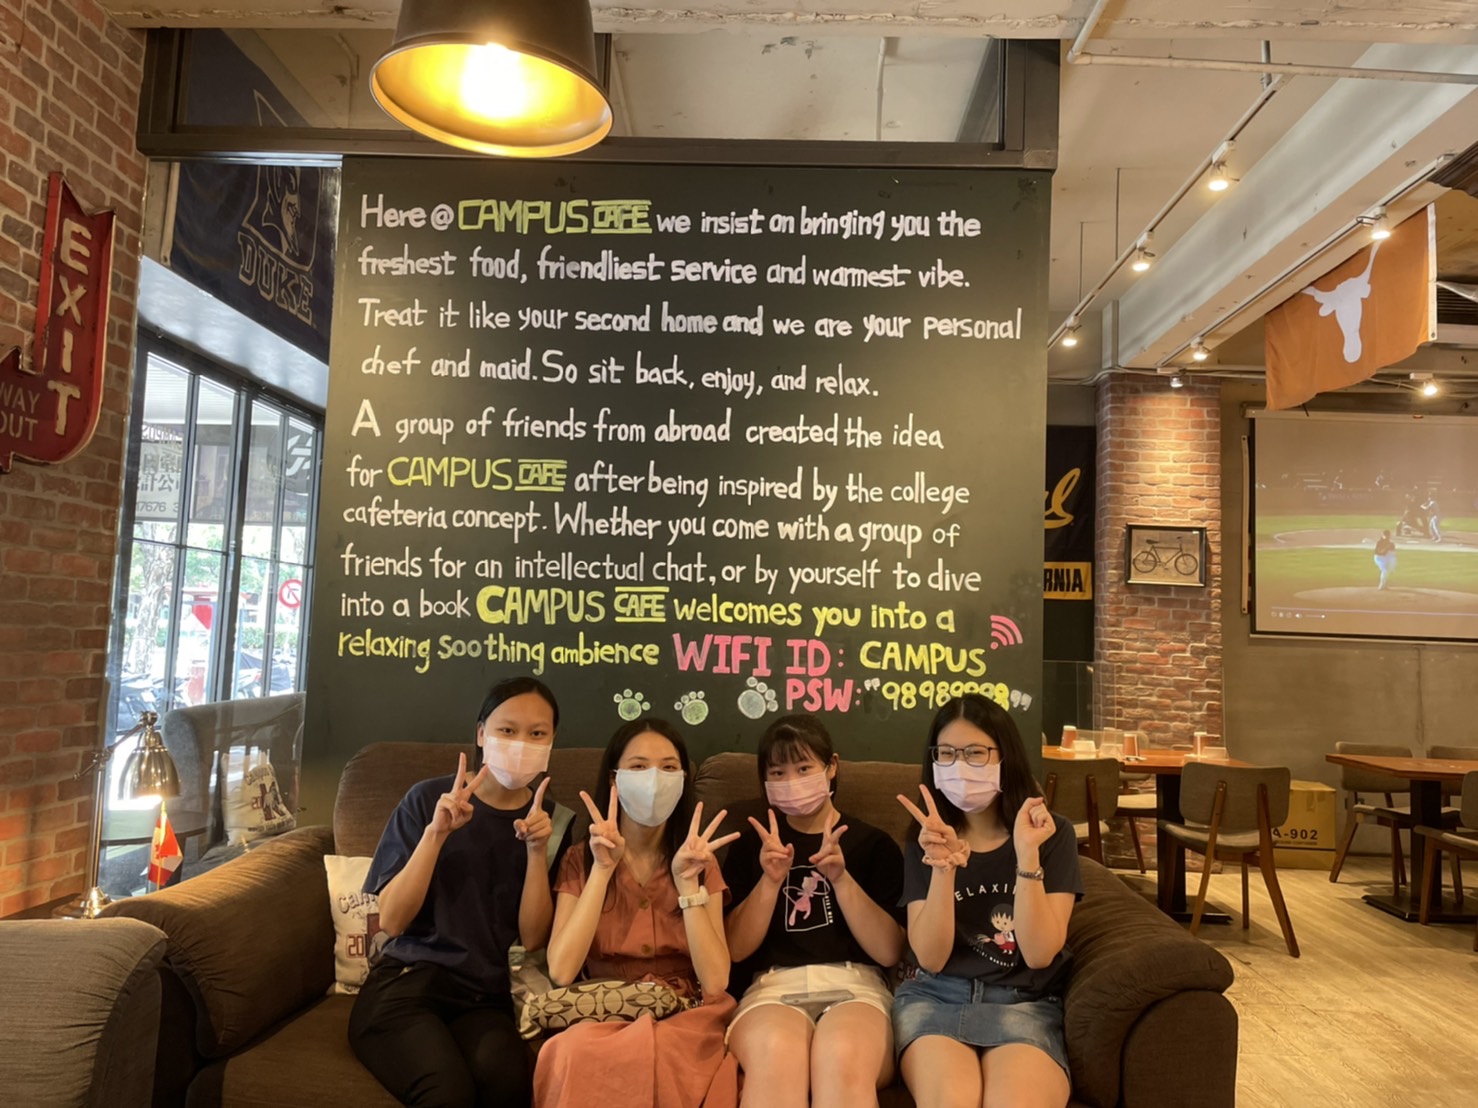 Here @ CAMPUS CAFE we insist on bringing you the
freshest food, friendliest service and warmest vibe.
Treat it like your second home and we are your personal
chef and maid. So sit back, enjoy, and relax.
A group of friends from abroad created the idea
for CAMPUS CAFE after being inspired by the college
cafeteria concept. Whether you come with a group of
friends for an intellectual chat, or by yourself to dive
into a book CAMPUS CAFE welcomes you into a
relaxing soothing ambience WIFI ID: CAMPUS
PSW: "98989898"
EXIT
WAY
OUT
DUKE
RNIA
A-902
RELAXI